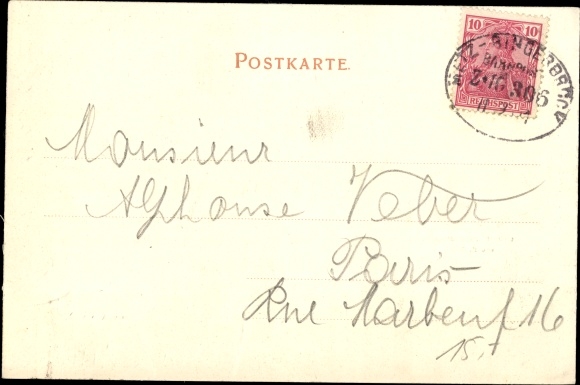 POSTKARTE.
10 10
REICHSPOST
METZ-BINGERBRÜCK
BAHNPOST
Z. 10 386
Monsieur
Alphonse Veber
Paris
Rue Marbeuf 16
15.